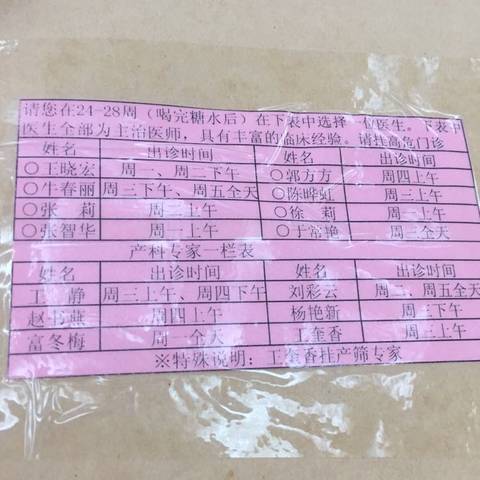 请您在24-28周（喝完糖水后）在下表中选择一位医生。下表中
医生全部为主治医师，具有丰富的临床经验。请挂高危门诊
姓名 出诊时间 姓名 出诊时间
○王晓宏 周一、周二下午 ○郭方方 周四上午
○牛春丽 周三下午、周五全天 ○陈晔虹 周三上午
○张 莉 周三上午 ○徐 莉 周一上午
○张智华 周一上午 ○于常艳 周三全天
产科专家一栏表
姓名 出诊时间 姓名 出诊时间
王 静 周三上午、周四下午 刘彩云 周二、周五全天
赵书燕 周四上午 杨艳新 周三下午
富冬梅 周一全天 王奎香 周三上午
※特殊说明：王奎香挂产筛专家